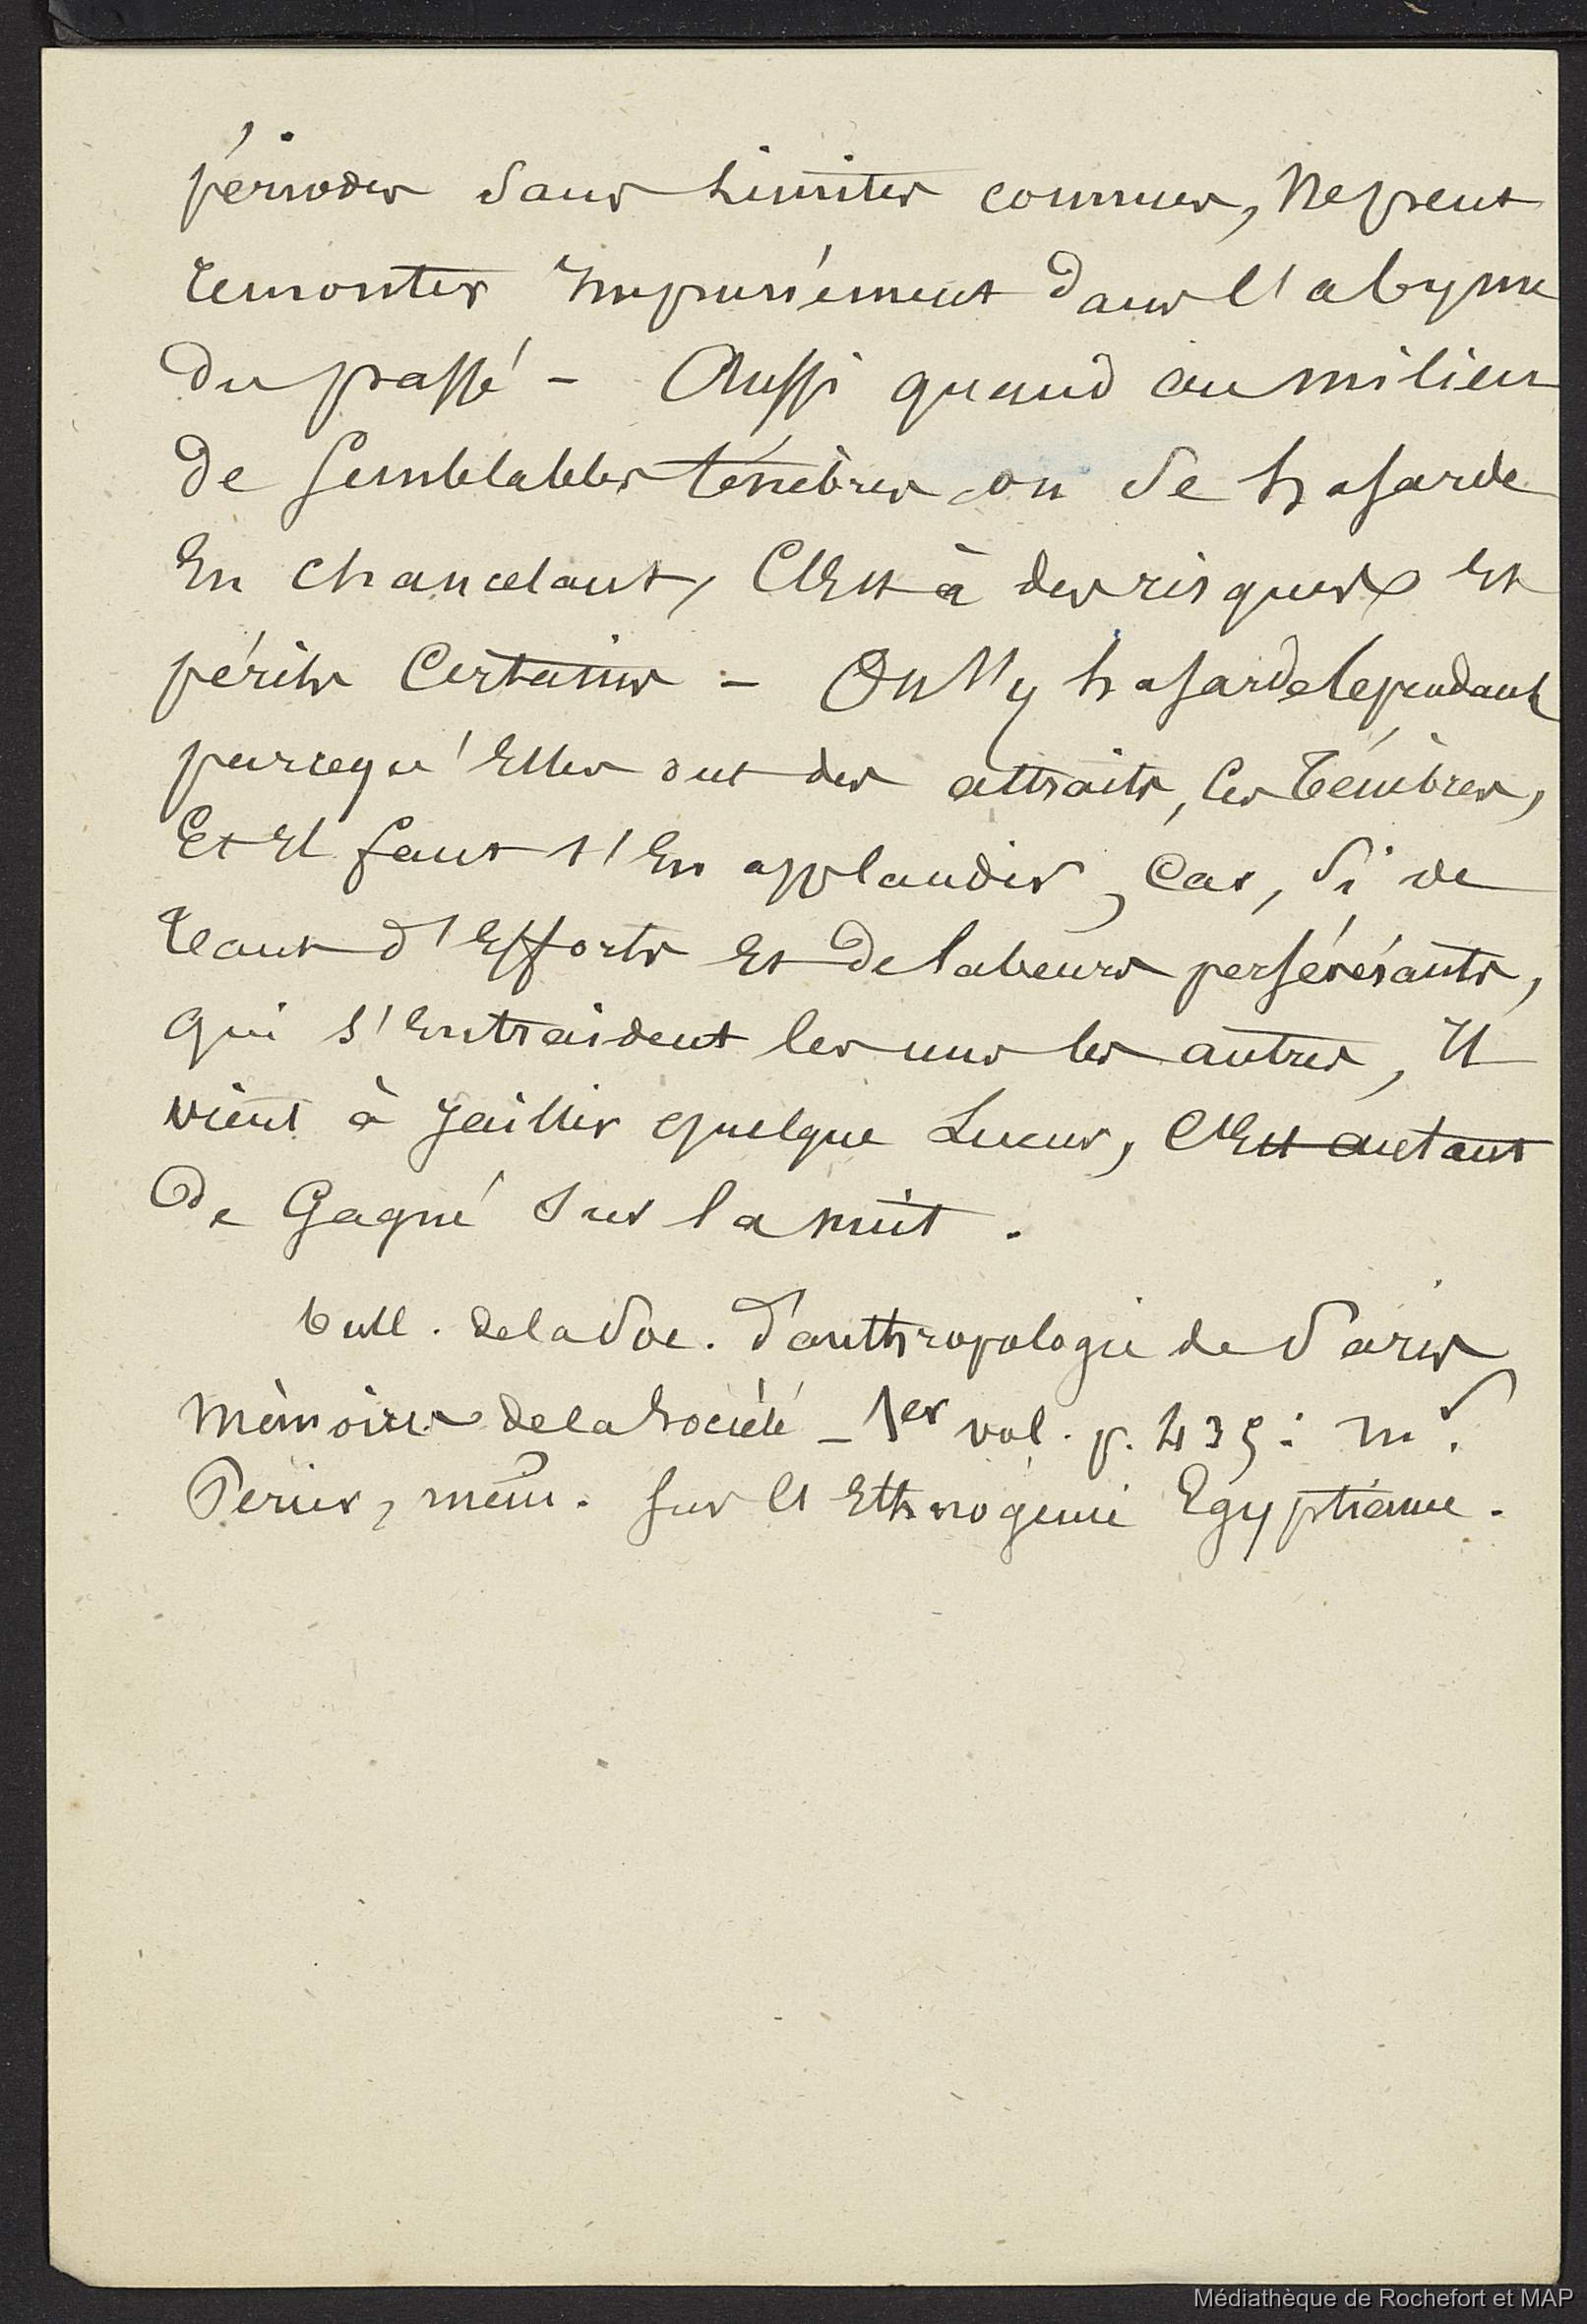 périodes sans limites connues, ne peut
remonter impunément dans l'abyme
du passé - Aussi quand au milieu
de semblables ténèbres on se hasarde
en chancelant, c'est à des risques et
périls certains - On s'y hasarde cependant
parce qu'elles ont des attraits, ces ténèbres,
et il faut s'en applaudir, car, si de
tant d'efforts et de labeurs persévérants,
qui s'entraident les uns les autres, il
vient à jaillir quelque lueur, c'est autant
de gagné sur la nuit.
bull. de la Soc. d'anthropologie de Paris
Mémoires de la Société - 1er vol. p. 435 : mr.
Perier, mém. sur l'Ethnogénie Egyptienne.
Médiathèque de Rochefort et MAP